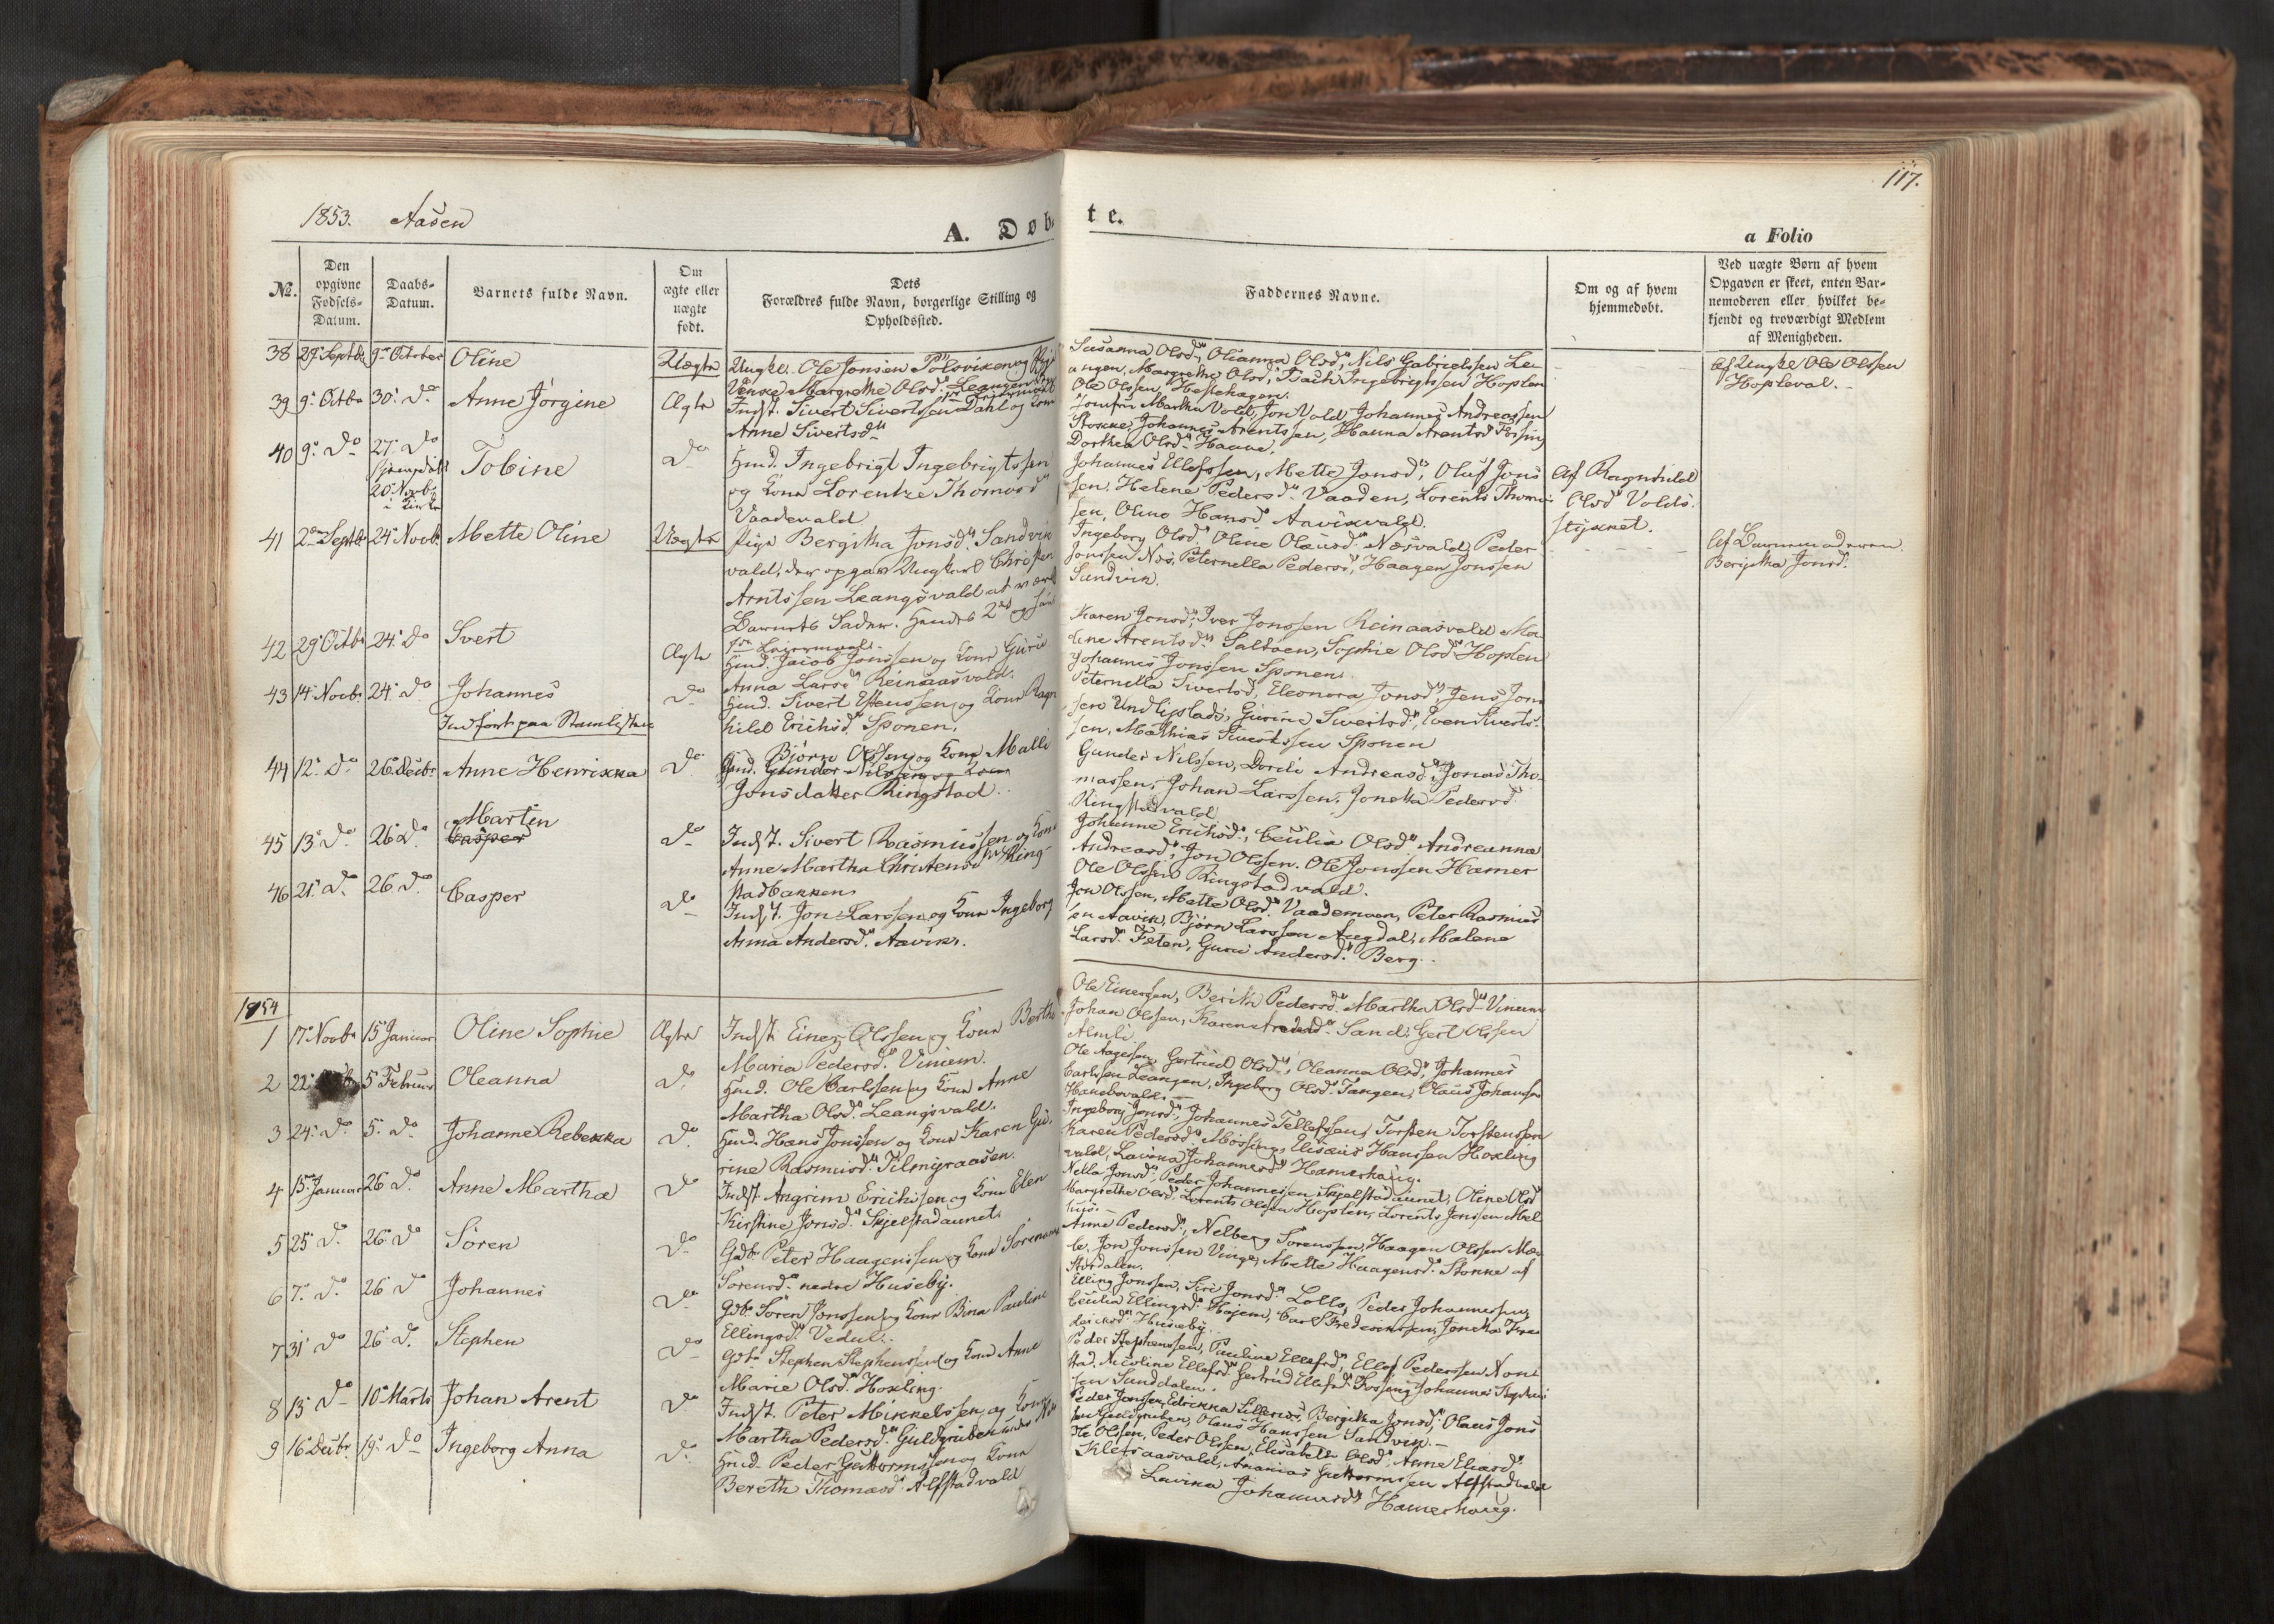 117.
1853. Aasen
A. Døb
te.
a Folio
No.
Den opgivne Fødsels-Datum.
Daabs-Datum.
Barnets fulde Navn.
Om ægte eller uægte født.
Dets Forældres fulde Navn, borgerlige Stilling og Opholdssted.
Faddernes Navne.
Om og af hvem hjemmedøbt.
Ved uægte Børn af hvem Opgaven er skeet, enten Barnemoderen eller hvilket bekjendt og troværdigt Medlem af Menigheden.
38 29 Septbr 9de October Oline Uægte Ungk. Ole Jonsen
Margrethe Olsd. Leangen
Susanna Olsd, Olianna Olsd, Nils Gabrielssen Le-
angen, Margrethe Olsd, Isach Ingebrigtssen Hoplen
Ole Olssen Hestehagen.
Af Ungke Ole Olssen
Hopleval.
39 9 Octbr 30 do Anne Jørgine Ægte Indst. Sivert Sivertssen Dahl og Kone
Anne Sivertsd
Jomfru Martha Vold, Jon Vold, Johannes Andreassen
Johannes Arentssen, Hanna Arentsd
Dorthea Olsd
40 9 do 27 do
20 Novbr
i Kirke
Tobine do Hmd. Ingebrigt Ingebrigtssen
og Kone Lorentze Thomasd
Vaadevald
Johannes Ellefssen, Mette Jonsd, Oluf Jons
sen, Helene Pedersd Vaaden, Lorents Thomas
sen, Oline Hansd Aavikvald.
Af Ragnhild
Olsd Volds-
stykket.
41 2 Septbr 24 Novbr Mette Oline Uægte Pige Bergitha Jonsd. Sandvik
vald, der opgav Ungkarl Christen
Arntssen Leangsvald at være
Barnets Fader. Hendes 2det og hans
1ste Leiermaal.
Ingeborg Olsd, Oline Olausd Næsvald, Peder
Jonssen Næs, Peternella Pedersd, Haagen Jonssen
Sandvik.
Af Barnemoderen
Bergitha Jonsd.
42 29 Octbr 24 do Svert Ægte Hmd. Jacob Jonssen og Kone Guru
Anna Larsd Reinaasvald.
Karen Jonsd, Iver Jonssen Reinaasvald Ma-
line Arentsd Saltøen, Sophie Olsd Hoplen
Johannes Jonssen Sponen
43 14 Novbr 24 do Johannes
Indført paa Stamlisten
do Hmd. Sivert Estenssen og Kone Ragn
hild Erichsd Sponen.
Peternella Sivertsd, Eleonora Jonsd, Jens Jons
sen Undliplads, Gurine Sivertsd, Even Siverts-
sen, Mathias Sivertssen Sponen
44 12 do 26 Decbr Anne Henrikka do Hmd. Bjørn Olssen og Kone Malli
Gunder Nilssen og Kone
Jonsdatter Ringstad.
Gunder Nilssen, Dordi Andreasd, Jonas Tho-
massen, Johan Larssen, Jonetta Pedersd
Ringstadvald
45 13 do 26 do Martin
Casper
do Indst. Sivert Rasmussen og Kone
Anne Martha Christensd Ring-
stadbakken
Johanne Erichsd, Cecilia Olsd Andreanna
Andreasd, Jon Olssen. Ole Jonssen Hamer
Ole Olssen Ringstadvald.
46 21 do 26 do Casper do Indst. Jon Larssen og Kone Ingeborg
Anna Andersd. Aavik.
Jon Olssen, Mette Olsd Vaademoen, Peter Rasmus
sen Aavik, Bjørn Larssen Augdal, Malene
Larsd Feten, Guru Andersd Berg.
1854
1 17 Novbr 15 Januar Oline Sophie Ægte Indst. Einer Olssen og Kone Berthe
Maria Pedersd. Viniem.
Ole Einerssen, Berith Pedersd Martha Olsd Viniem
Johan Olssen, Karen Arentsd Sand, Gert Olssen
Almli.
2 22 5 Februar Oleanna do Hmd. Ole Carlssen og Kone Anne
Martha Olsd. Leangsvald.
Ole Aagessen, Gertrud Olsd, Oleanna Olsd, Johannes
Carlssen Leangen, Ingeborg Olsd Tangen, Olaus Johanssen
3 24 do 5 do Johanne Rebekka do Hmd. Hans Jonssen og Kone Karen Gu-
rine Rasmusd.
Ingeborg Jonsd, Johannes Tellefssen, Torsten Torstenssen
Karen Pedersd Mossing, Elisæus Hanssen Hoxling
vald, Lavina Johannesd Hamerhaug.
4 15 Januar 26 do Anne Martha do Indst Angrim Erichssen og Kone Elen
Kirstine Jonsd. Skjelstadaunet.
Nella Jonsd, Peder Johannessen Skjelstadaunet, Oline Olsd
Margrethe Olsd. Lorents Olssen Hoplen, Lorents Jenssen
5 25 do 26 do Søren do Gdb. Peter Haagenssen og Kone Sørenanna
Sørensd. nedre Huseby.
Anne Pedersd, Nelberg Sørenssen, Haagen Olssen
Jon Jonssen Vinge, Mette Haagensd Stokke af
Stjørdalen.
6 7 do 26 do Johannes do Gdb. Søren Jonssen og Kone Bina Pauline
Ellingsd. Vedul.
Elling Jonssen, Siri Jonsd Lollo, Peder Johannessen,
Cecilia Ellingsd Hojem, Carl Frederikssen, Jonetta Fre-
deriksd Huseby.
7 31 do 26 do Stephen do Gdb. Stephen Stephenssen og Kone Anne
Marie Olsd. Hoxling.
Peder Stephenssen, Pauline Ellefsd, Ellef Pederssen Non-
stad, Nicoline Ellefsd Gertrud Ellefsd Fossing Johannes Stephens
sen Sunddalen.
8 13 do 10 Marts Johan Arent do Indst. Peter Mikkelssen og Kone
Martha Pedersd. Guldgruben
Peder Jonssen, Bergitha Jonsd, Olaus Jons
sen Guldgruben, Olaus Hanssen Sandvik.
9 16 Decbr 19 do Ingeborg Anna do Hmd. Peder Guttormssen og Kone
Bereth Thomasd. Alfstadvald
Ole Olssen, Peder Olssen, Elisabeth Olsd, Anne Eliasd
Klefsaasvald, Ananias Guttormssen Alfstadvald
Lavina Johannesd Hamerhaug.